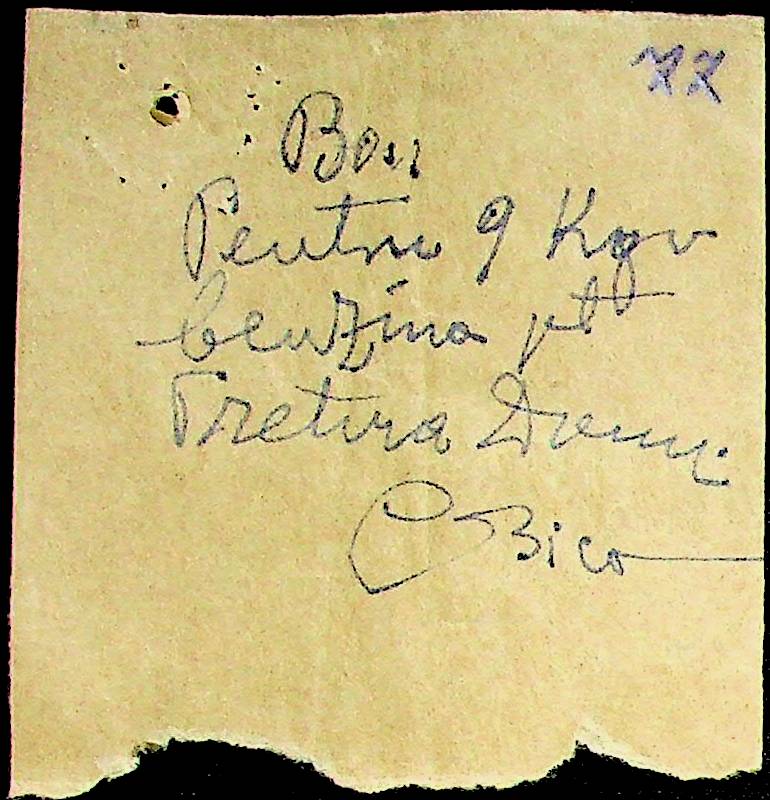 77
Bon
Pentru 9 Kgr
benzina pt
Tretira Domn
C Bico